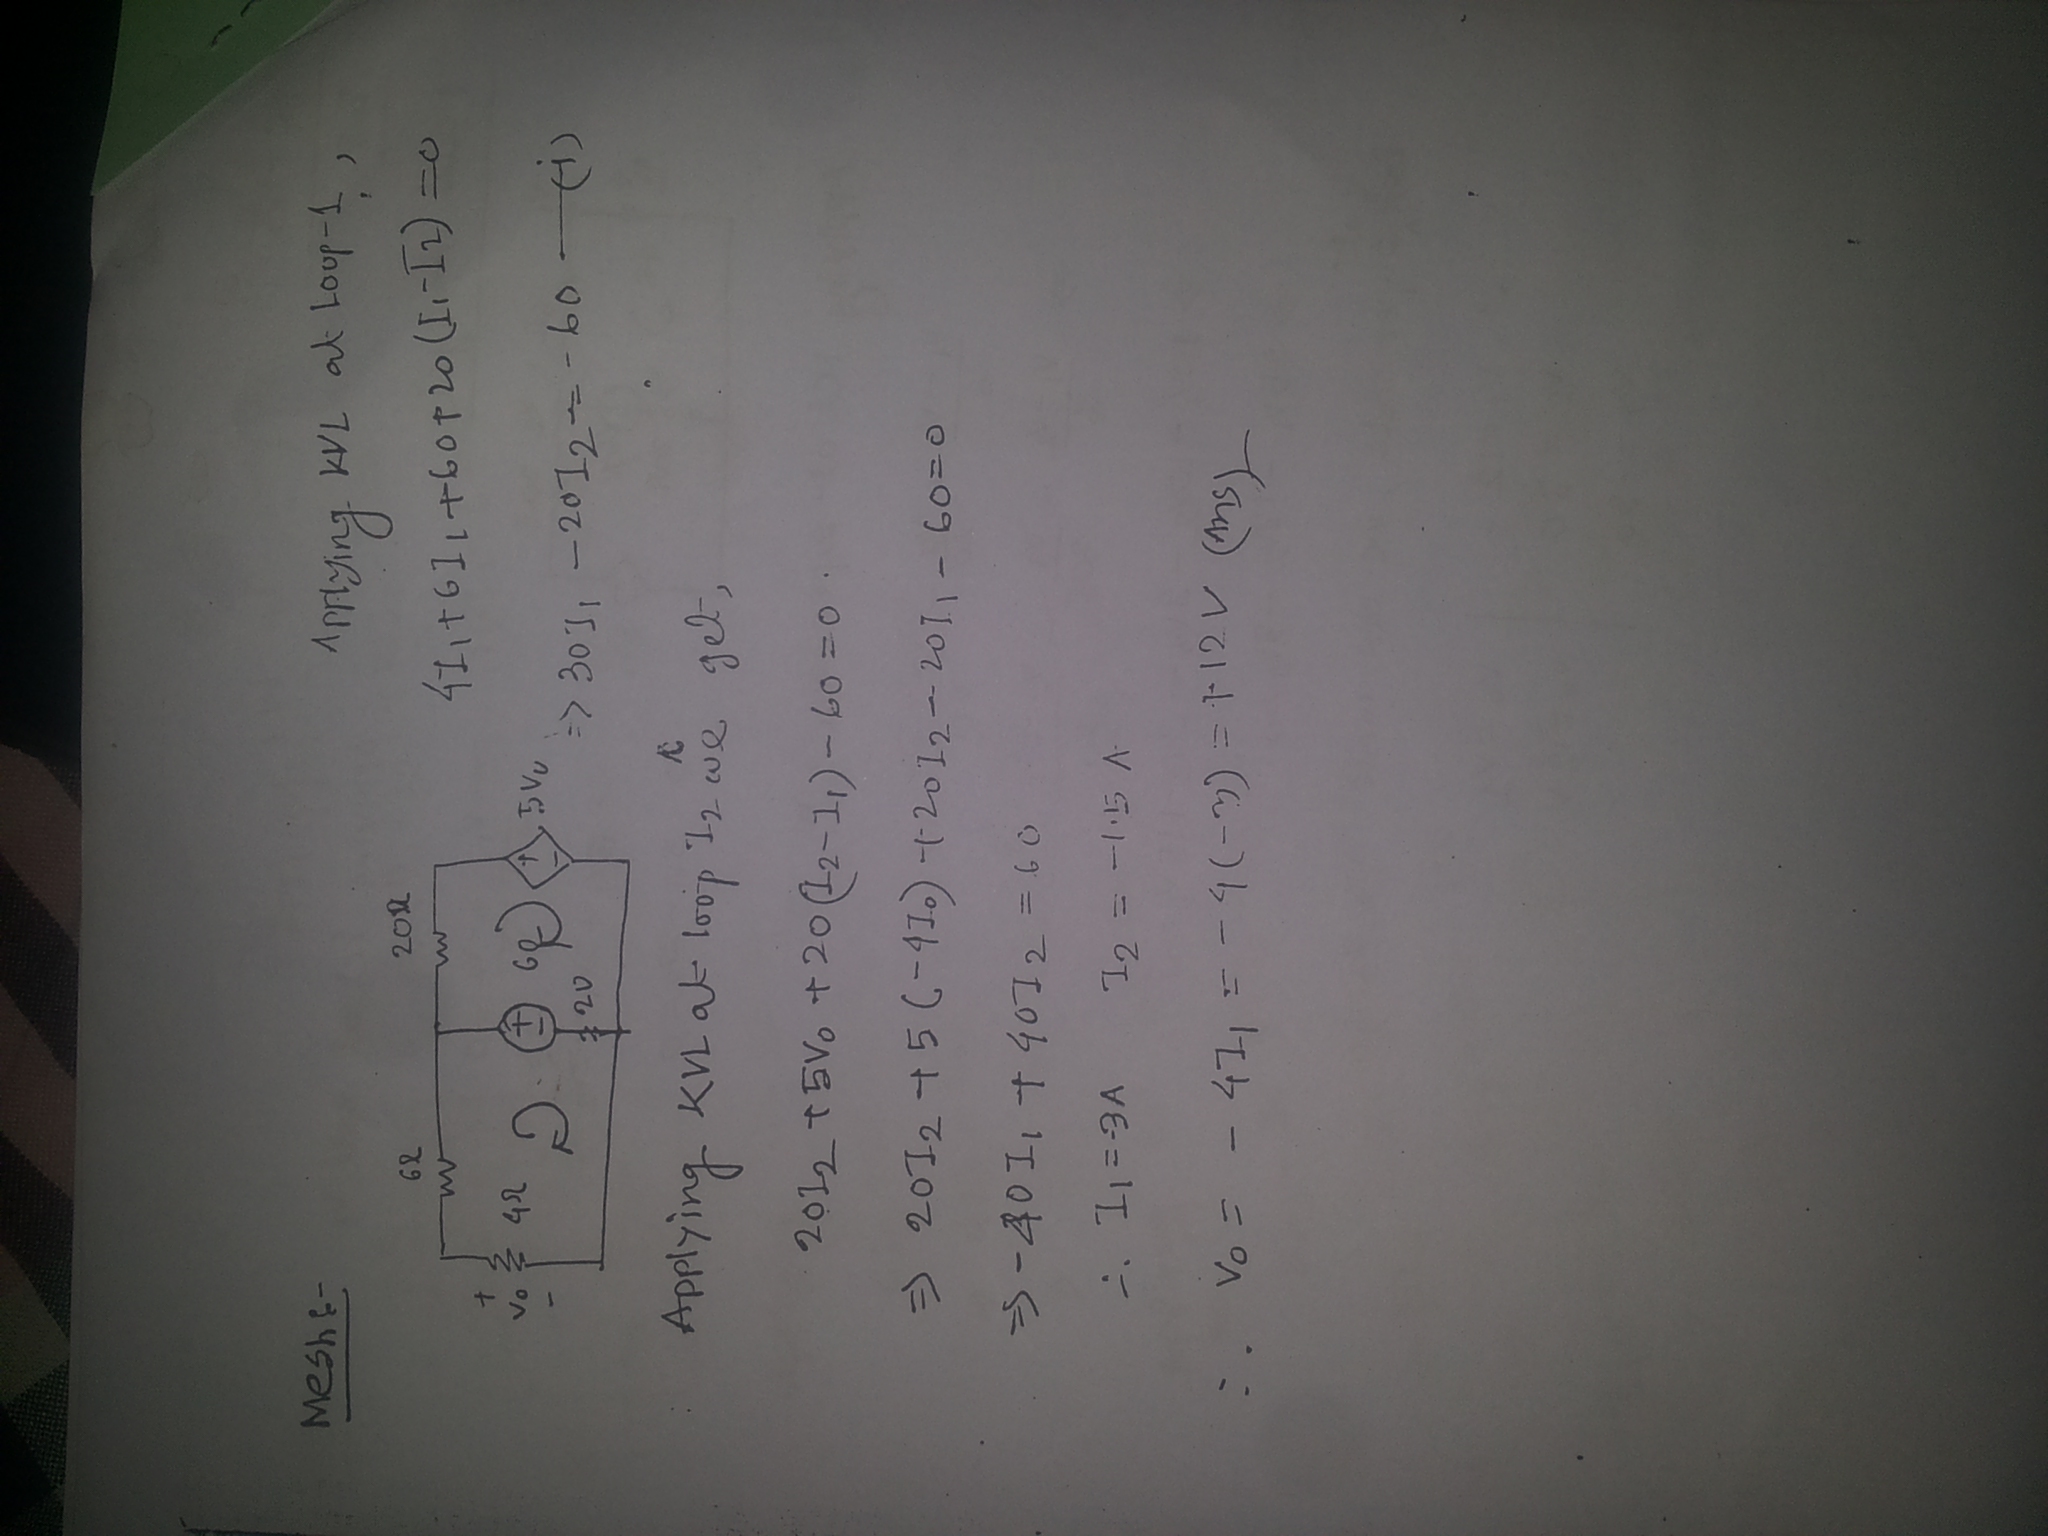 Mesh :-
Applying KVL at Loop-1,
6Ω 20Ω
4I₁+6I₁+60+20(I₁-I₂)=0
+
V₀ 4Ω + 60 + 5V₀
-
20
=> 30I₁ -20I₂ = -60 —(i)
Applying KVL at loop I₂ we get,
20I₂ +5V₀ +20(I₂-I₁)-60=0.
=> 20I₂ +5(-4I₀) +20I₂-20I₁-60=0
=> -40I₁ + 40I₂ = 60
∴ I₁=-3A I₂ = -1.5 A
∴ V₀ = -4I₁ = -4(-3) = +12V (Ans)